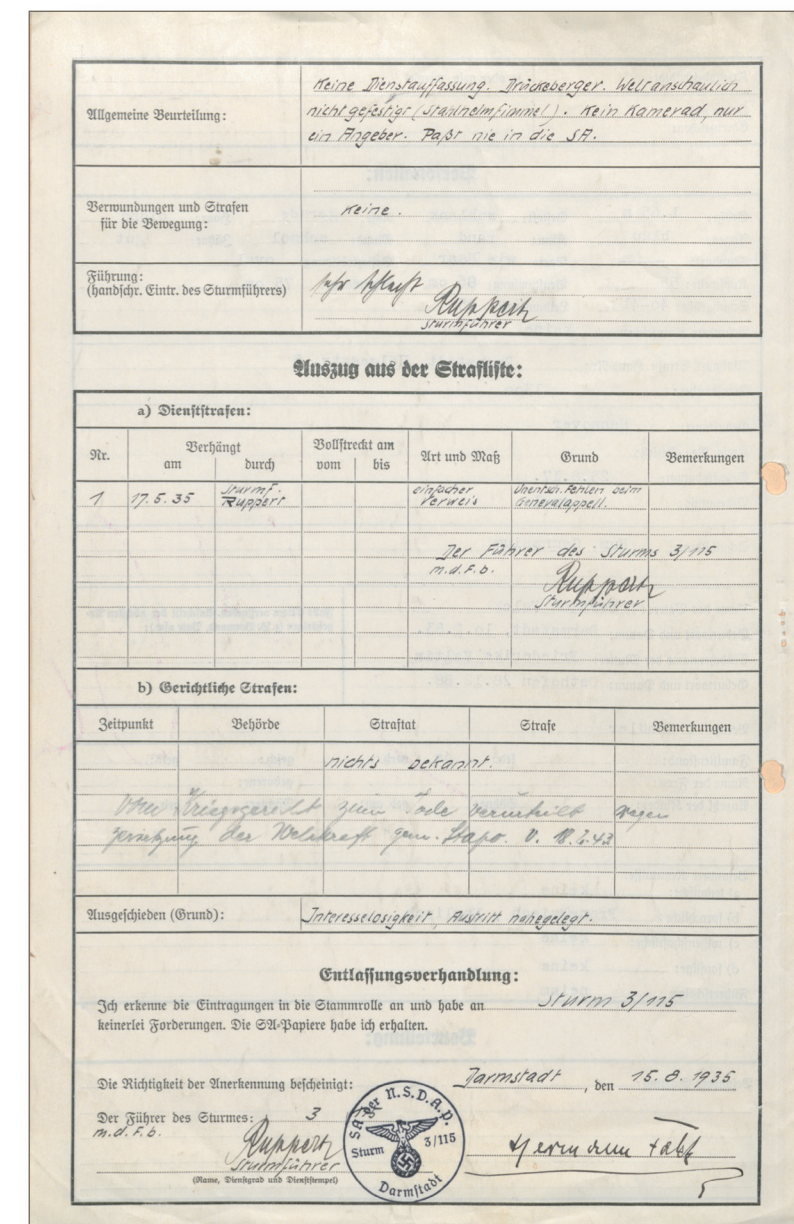 Allgemeine Beurteilung:
Keine Dienstauffassung. Drückeberger. Weltanschaulich
nicht gefestigt (Stahlhelmfimmel). Kein Kamerad, nur
ein Angeber. Paßt nie in die SA.
Verwundungen und Strafen
für die Bewegung:
Keine.
Führung:
(handschr. Eintr. des Sturmführers)
sehr schlecht
Ruppert
Sturmführer
Auszug aus der Strafliste:
a) Dienststrafen:
Nr. Verhängt Vollstreckt am Art und Maß Grund Bemerkungen
am durch vom bis
1 17.5.35 Sturmf. Ruppert einfacher Verweis Unentsch. Fehlen beim Generalappell.
Der Führer des Sturms 3/115
m.d.F.b.
Ruppert
Sturmführer
b) Gerichtliche Strafen:
Zeitpunkt Behörde Straftat Strafe Bemerkungen
nichts bekannt.
Vom Kriegsgericht zum Tode verurteilt wegen
Zersetzung der Wehrkraft gem. Stapo. v.
Ausgeschieden (Grund): Interesselosigkeit, Austritt nahegelegt.
Entlassungsverhandlung:
Ich erkenne die Eintragungen in die Stammrolle an und habe an Sturm 3/115
keinerlei Forderungen. Die SA-Papiere habe ich erhalten.
Die Richtigkeit der Anerkennung bescheinigt: Darmstadt, den 15.8.1935
Der Führer des Sturmes: 3
m.d.F.b.
Ruppert
Sturmführer
(Name, Dienstgrad und Dienststempel)
SA der N.S.D.A.P.
Sturm 3/115
Darmstadt
Hermann